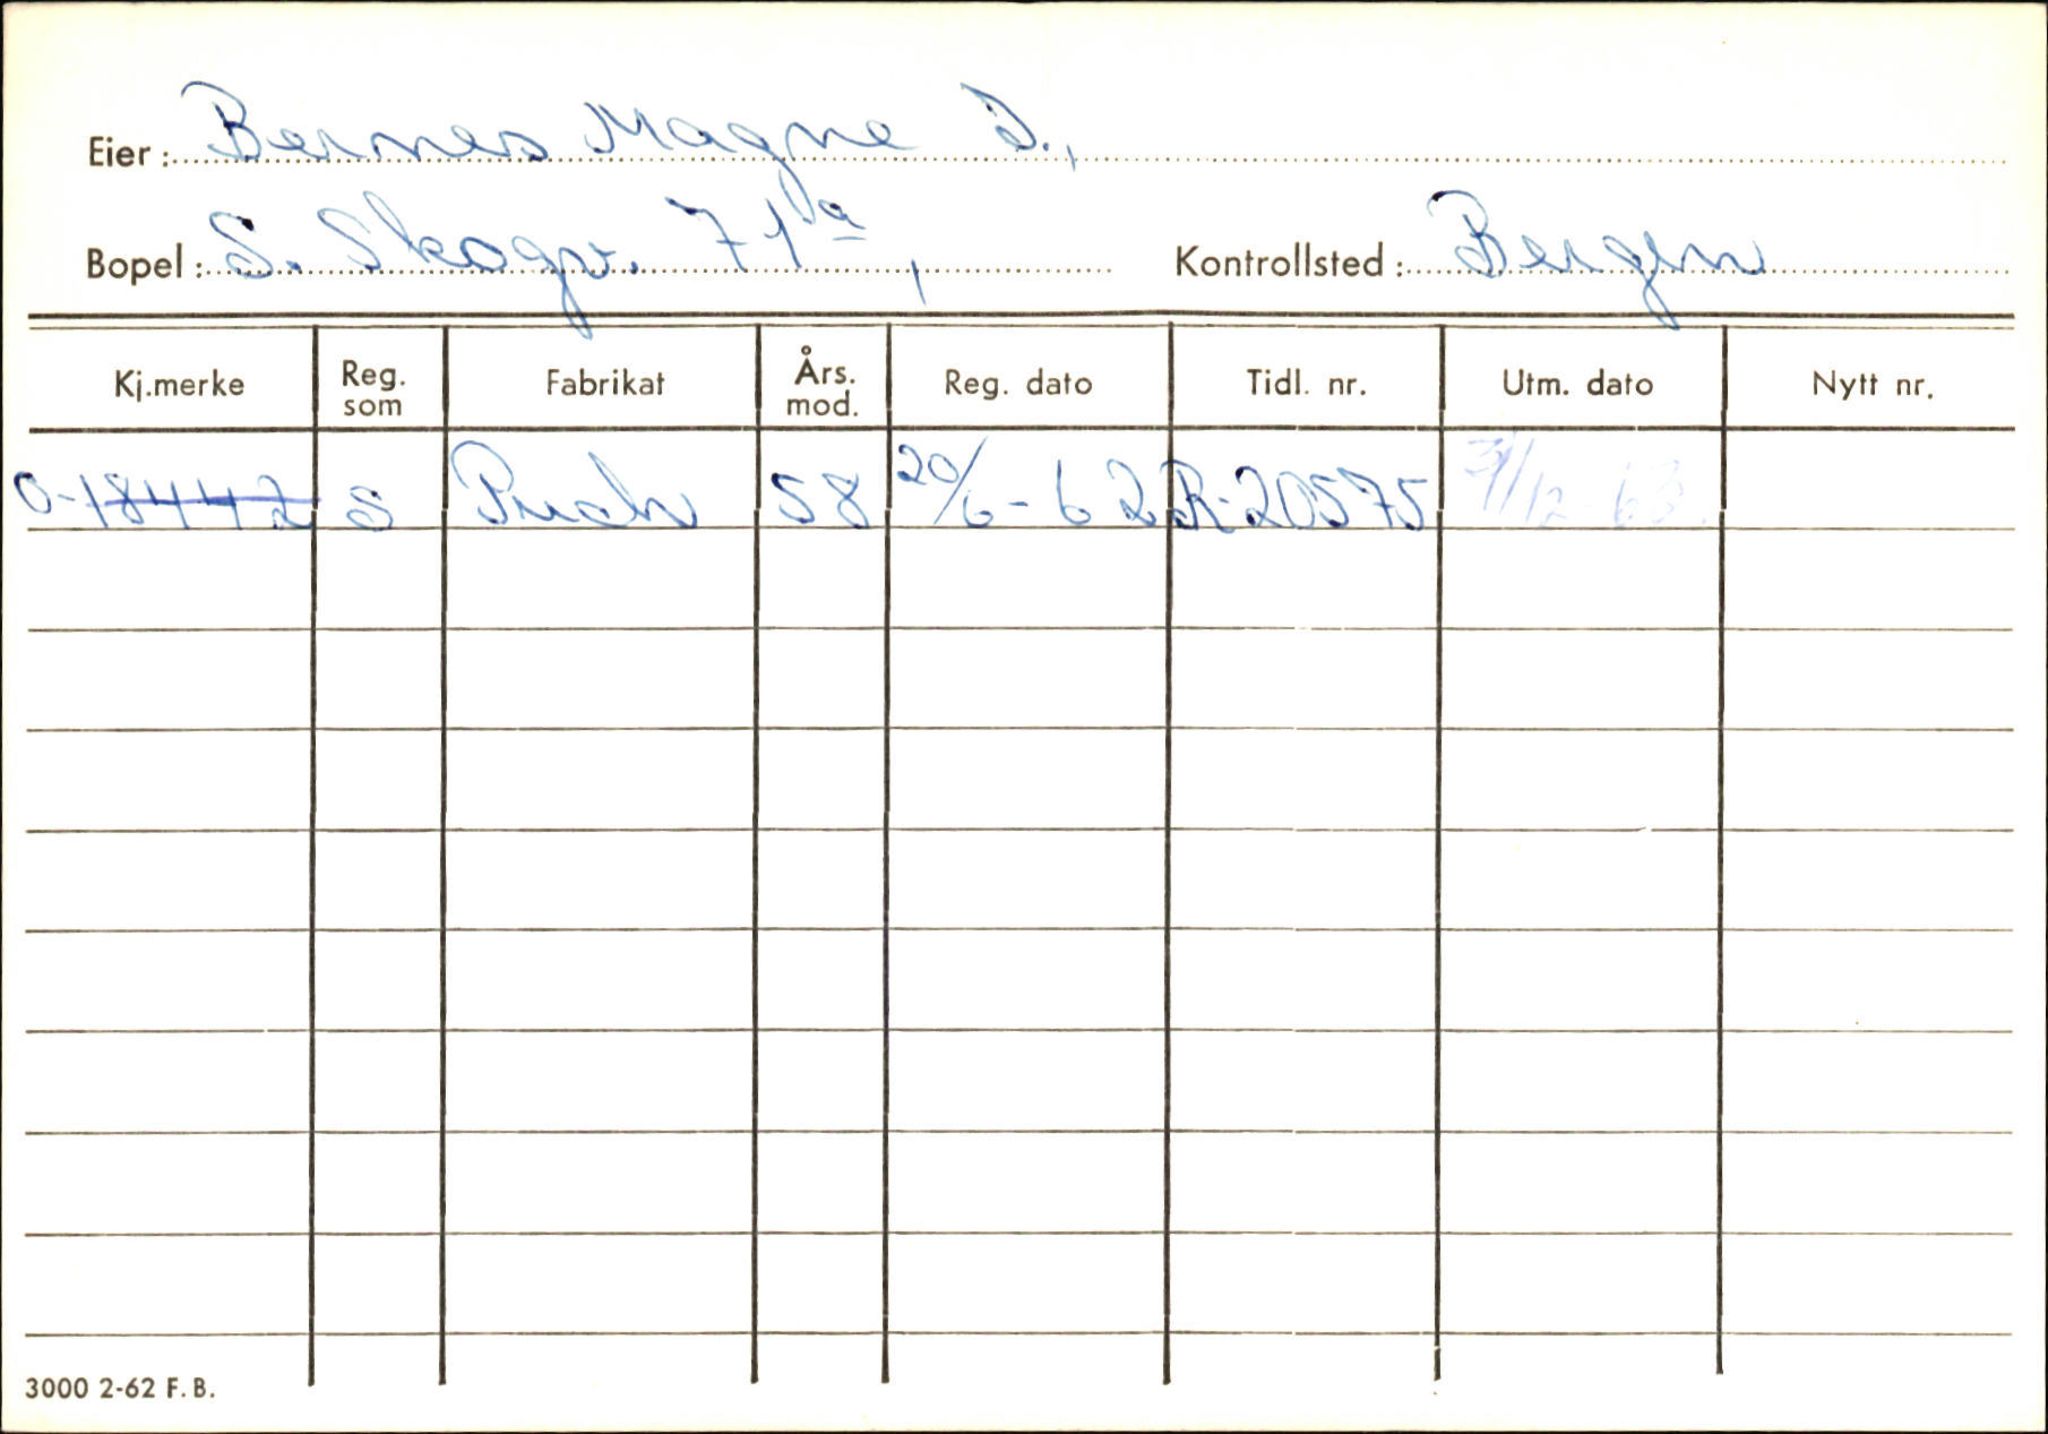 Eier: Bernes Magne D.,
Bopel: S. Skogv. 71a, Kontrollsted: Bergen
Kj.merke Reg. som Fabrikat Års. mod. Reg. dato Tidl. nr. Utm. dato Nytt nr.
O-18442 S Puch 58 20/6-62 R-20575 31/12-63.
3000 2-62 F. B.